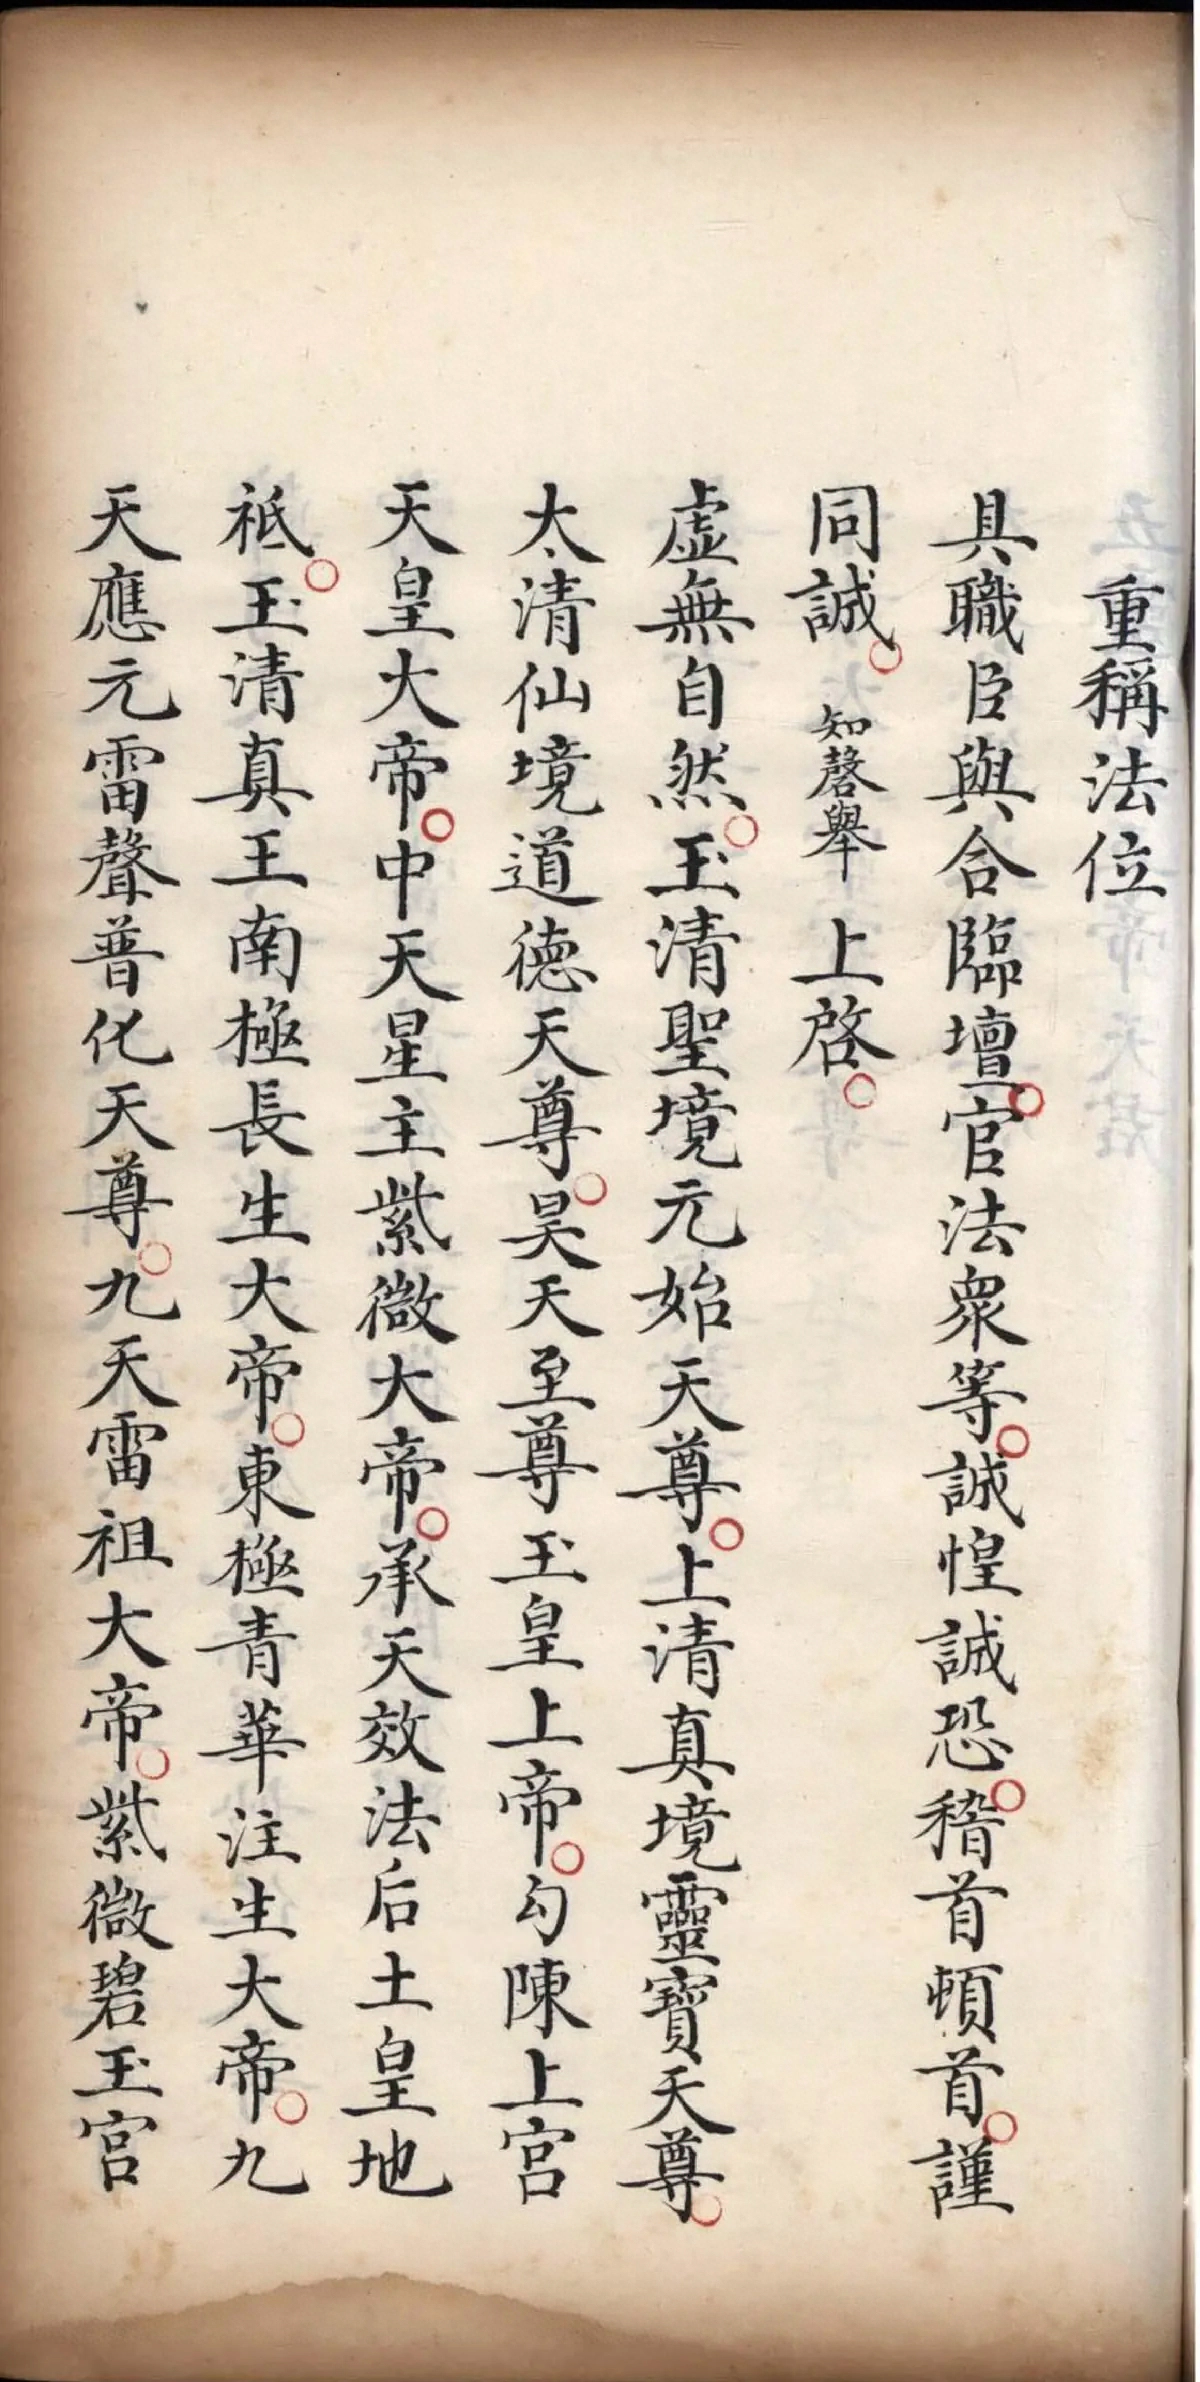 重稱法位
具職臣與合臨壇○官法衆等○誠惶誠恐○稽首頓首○謹
同誠○知磬舉上啓○
虛無自然○玉清聖境元始天尊○上清真境靈寶天尊○
太清仙境道德天尊○昊天至尊玉皇上帝○勾陳上宮
天皇大帝○中天星主紫微大帝○承天效法后土皇地
祗○玉清真王南極長生大帝○東極青華注生大帝○九
天應元雷聲普化天尊○九天雷祖大帝○紫微碧玉宮